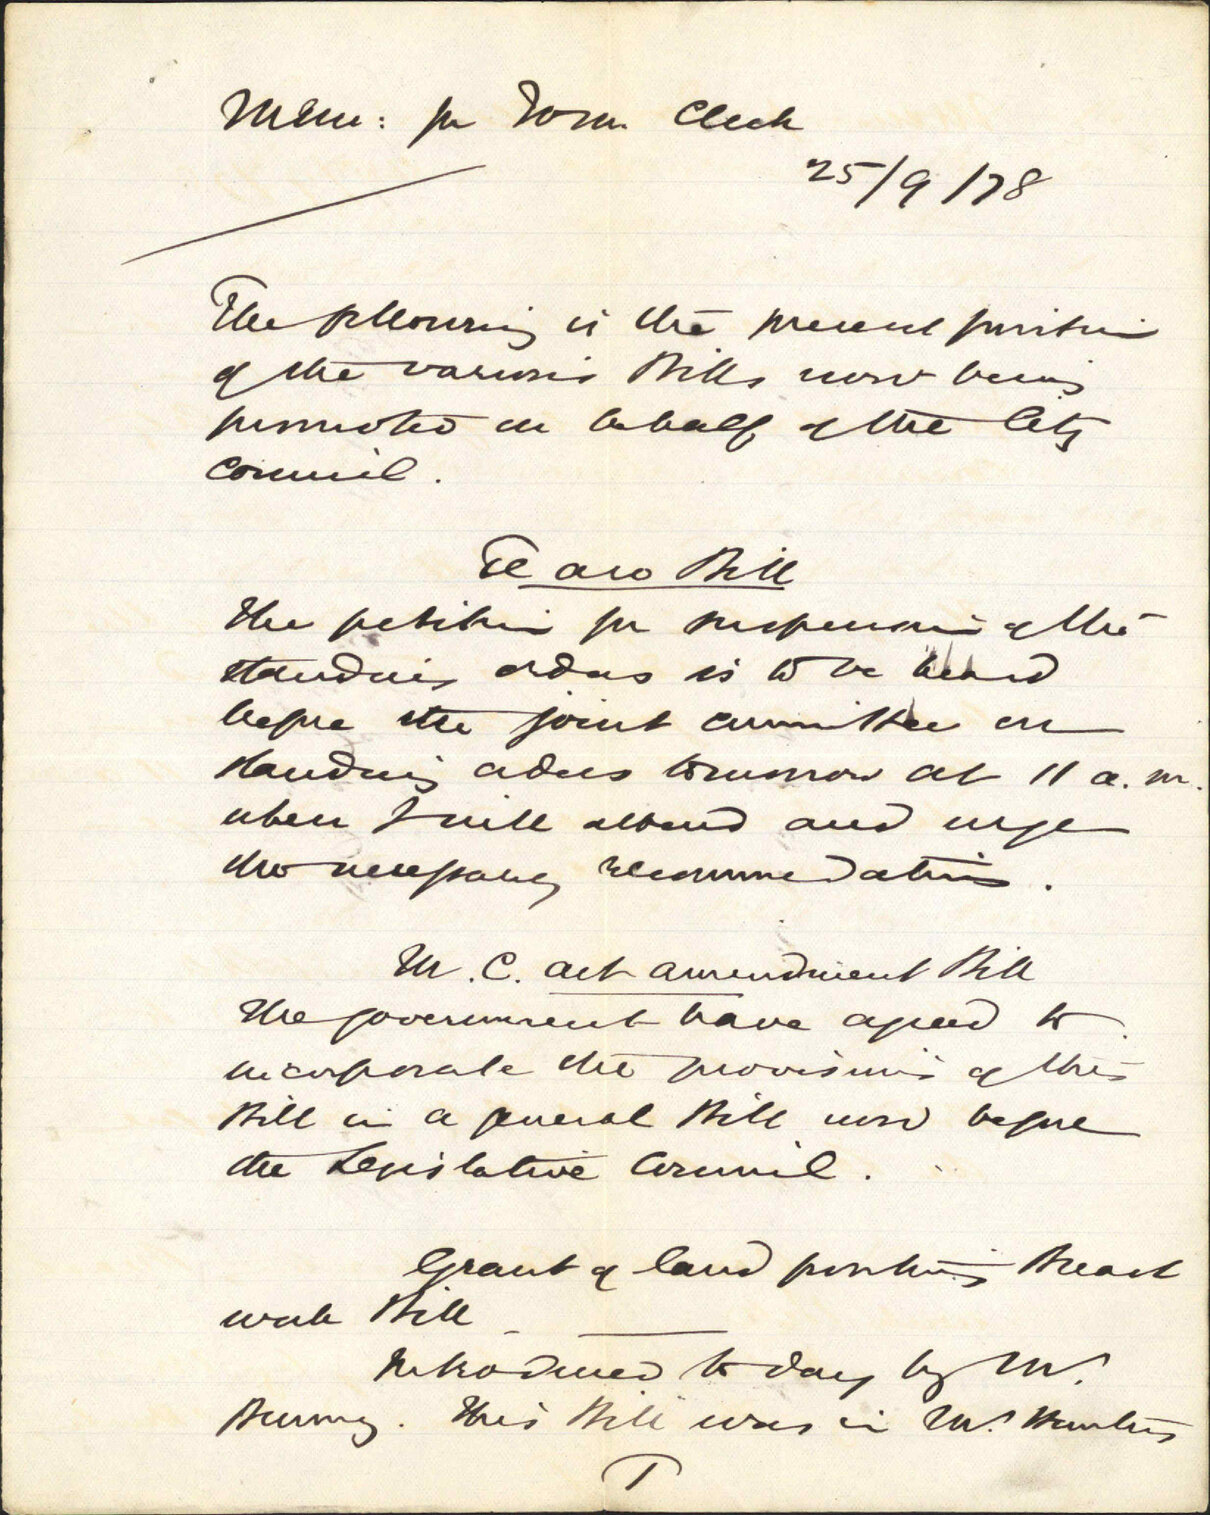 Mem: for Town Clerk
25/9/78
The following is the present position
of the various Bills now being
promoted on behalf of the City
Council.
Te aro Bill
The petition for suspension of the
standing orders is to be heard
before the joint committee on
standing orders tomorrow at 11 a.m.
when I will attend and urge
the necessary recommendation.
M.C. act amendment Bill
The government have agreed to
incorporate the provisions of this
Bill in a general Bill now before
the Legislative Council.
Grant of land fronting Breast
work Bill
Introduced to day by Mr.
This Bill was in Mr. Hunter's